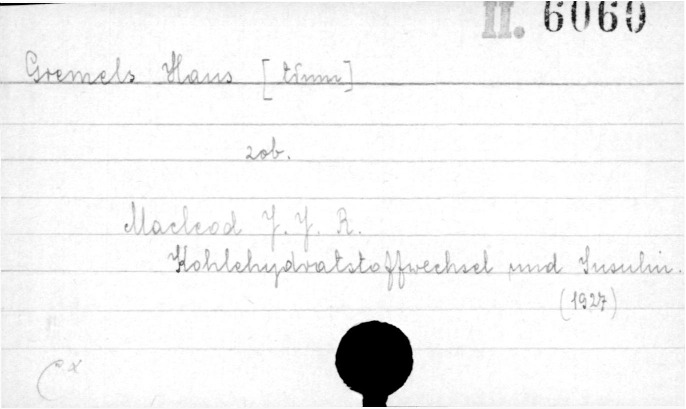 II. 6060
Gremels Hans [tłum]
zob.
Macleod J. J. R.
Kohlehydratstoffwechsel und Insulin.
(1927)